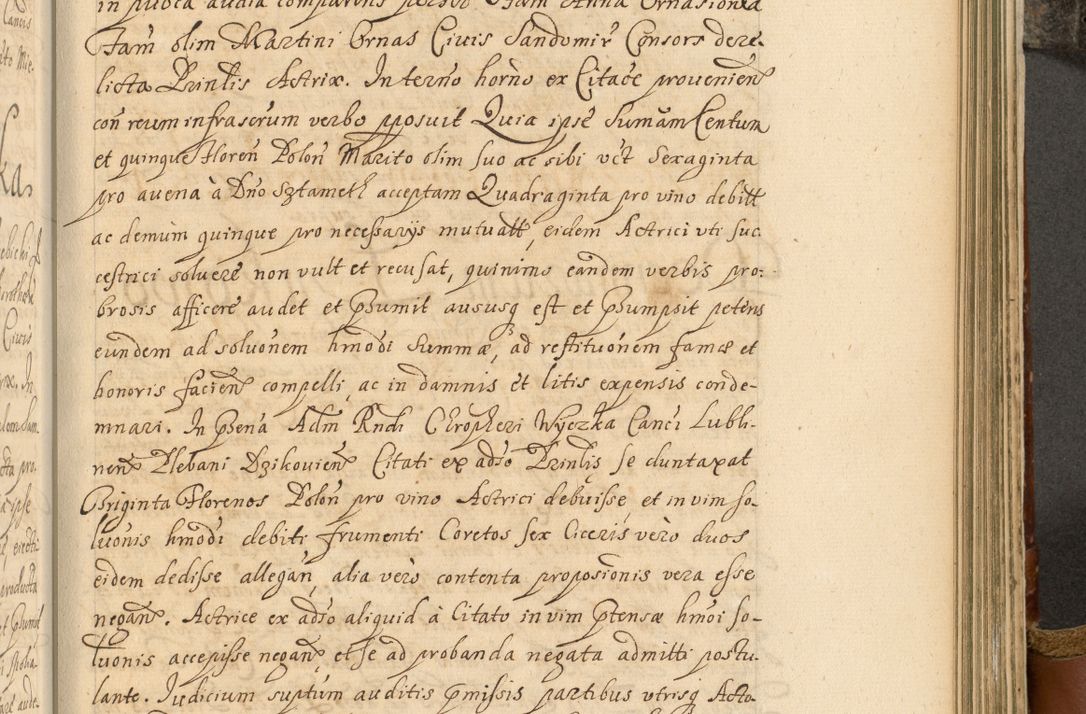 in publica audia comparens perso
Fam olim Martini Ornas Civis Sandomir̃ Consors dere-
licta Prinlis Actrix. In termo horño ex Citaõe provenieñ
coñ reum infrascrum verbo pposuit Quia ipse Sumãm Centum
et quinque Floreñ Poloñ Marito olim suo ac sibi vc̃t Sexaginta
pro avena à Dño Sztameth acceptam Quadraginta pro vino debitt
ac demum quinque pro necessarys mutuatt, eidem Actrici uti suc
cestrici solvere non vult et recusat, quinimo eandem verbis pro-
brosis afficere audet et Psumit aususq est et Psumpsit petens
eundem ad soluõnem hmõdi Summæ, ad restituõnem famæ et
honoris facieñ compelli, ac in damnis et litis expensis conde-
mnari. In Psẽna Adm Rndi Chrõpheri Wyczka Canci Lubli-
neñ Plebani Dzikovieñ Citati ex adso Prinlis se duntaxat
Triginta Florenos Poloñ pro vino Actrici debuisse, et in vim so-
luõnis hmõdi debiti frumenti Coretos sex Ciceris vero duos
eidem dedisse allegañ, alia vero contenta proposiõnis vera esse
negañ. Actrice ex adso aliquid à Citato in vim Ptensæ hmõi so-
luõnis accepisse negañ, et se ad probanda negata admitti postu-
lante. Iudicium suptum auditis Pmissis partibus utrisq Acto